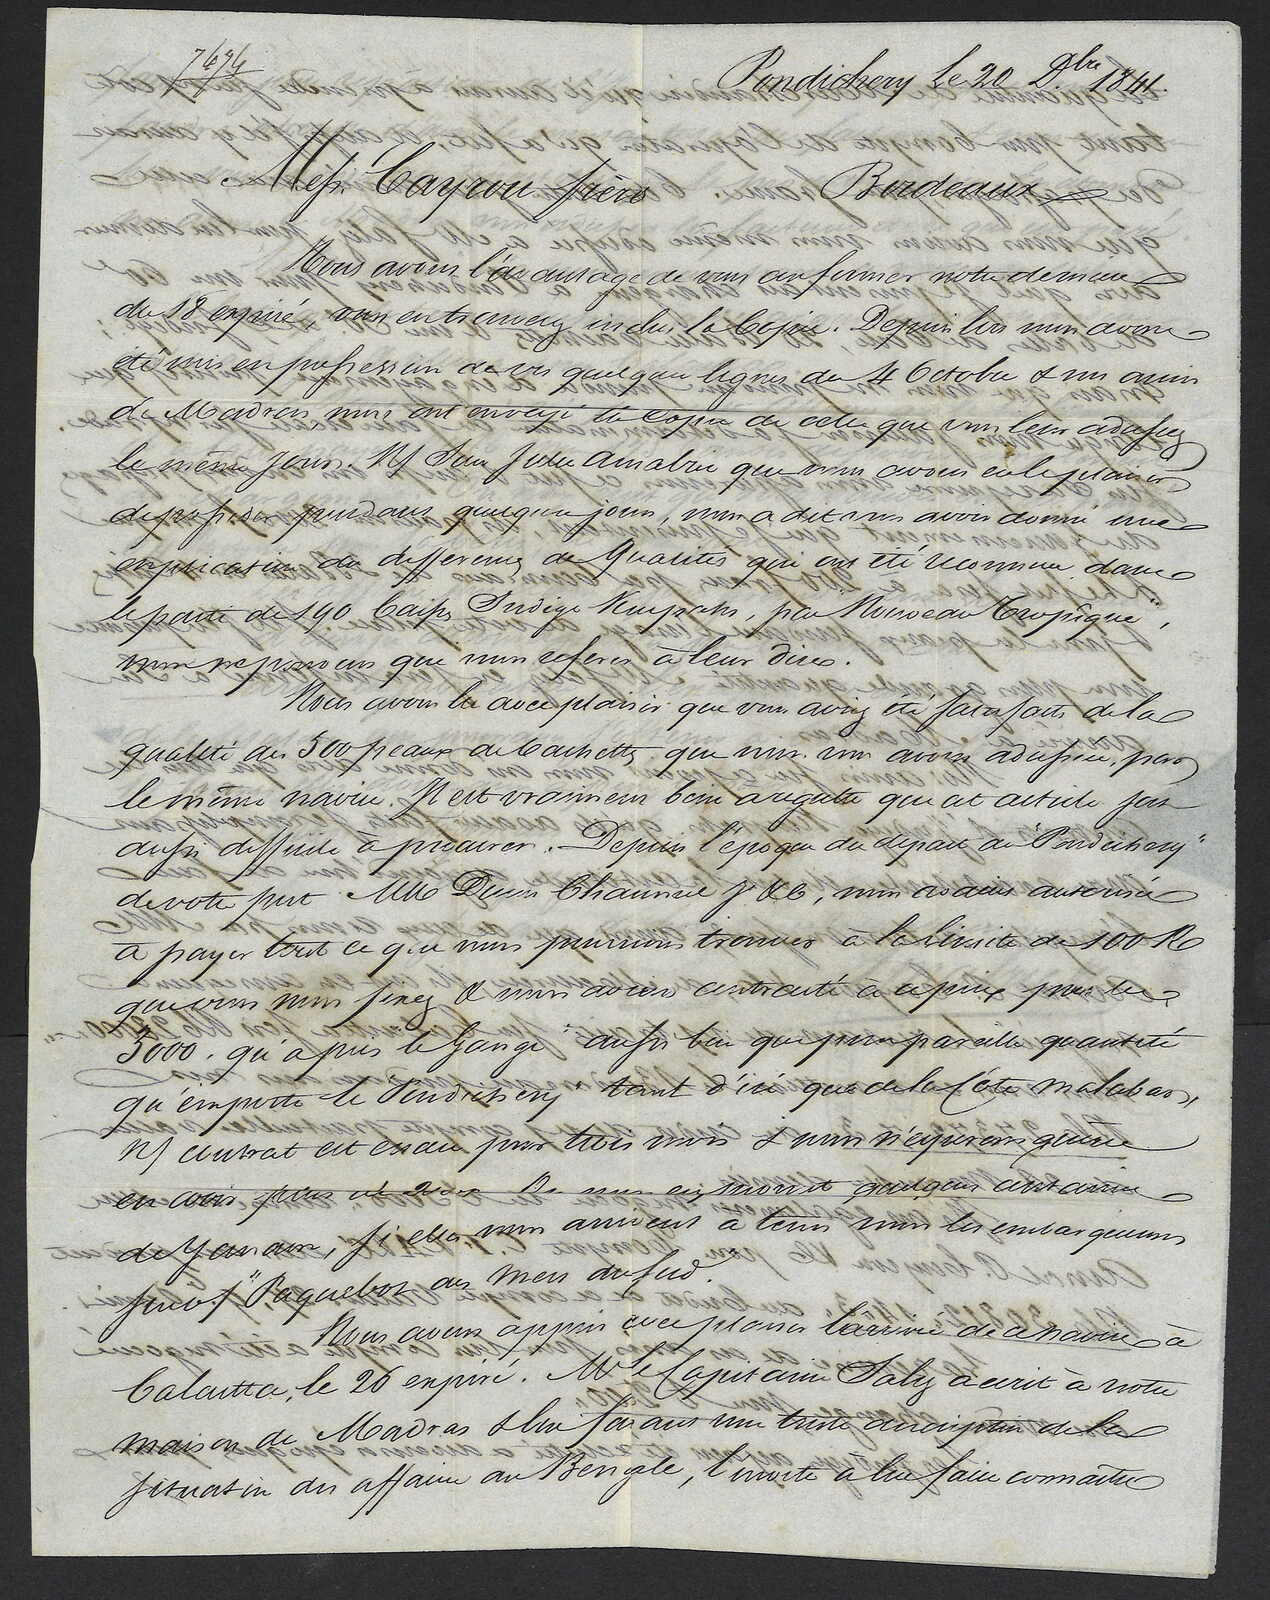 7674
Pondichery le 20 Dbre 1841.
Mess. Cayrou frères Bordeaux
Nous avons l'avantage de vous confirmer notre dernière
du 18 expiré, vous en trouverez inclus la Copie. Depuis lors nous avons
été mis en possession de vos quelques lignes du 4 Octobre & nos amis
de Madras nous ont envoyé la Copie de celle que vous leur adressez
le même jour. Mr que nous avons eu le plaisir
de posséder pendant quelques jours, nous a dit vous avoir donné une
explication des differences de Qualités qui ont été reconnues dans
la partie de 190 Caisses Indigo Kurpahs, par Nouveau Tropique",
nous ne pouvons que nous referer à leur dires.
Nous avons lu avec plaisir que vous aviez été satisfaits de la
qualité des 500 peaux de Cachette que nous vous avons adressées par
le même navire. Il est vraiment bien à regretter que cet article soit
aussi difficile à procurer. Depuis l'époque du départ du "Pondichery"
de votre port MM Chaumel Je & C, nous avaient autorisés
à payer tout ce que nous pourrions trouver à la limite de 100 R
que vous nous fixez & nous avions contracté à ce prix pour les
5000. qu'a pris le Gange" aussi bien que pour pareille quantité
qu'emporte le "Pondichery" tant d'ici que de la Côte Malabar,
N/ contrat est encore pour trois mois & nous n'esperons guère
en avoir plus de 2000 On nous en promet quelques centaines
de Yanaon, si elles nous arrivent à tems nous les embarquerons
sur le "Paquebot des Mers du Sud".
Nous avons appris avec plaisir l'arrivée de ce navire à
Calcutta, le 26 expiré. Mr le Capitaine Saliz a écrit à notre
maison de Madras & lui faisant une triste description de la
situation des affaires au Bengale, l'invite à lui faire connaître